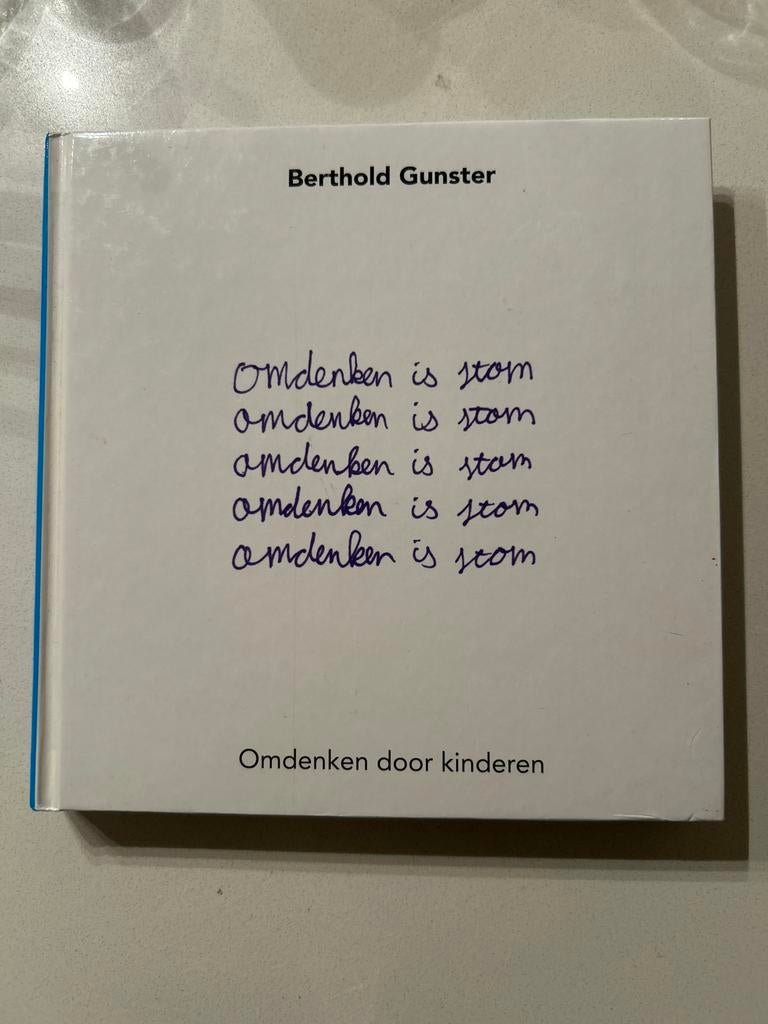 Berthold Gunster
Omdenken is stom
omdenken is stom
omdenken is stom
omdenken is stom
omdenken is stom
Omdenken door kinderen